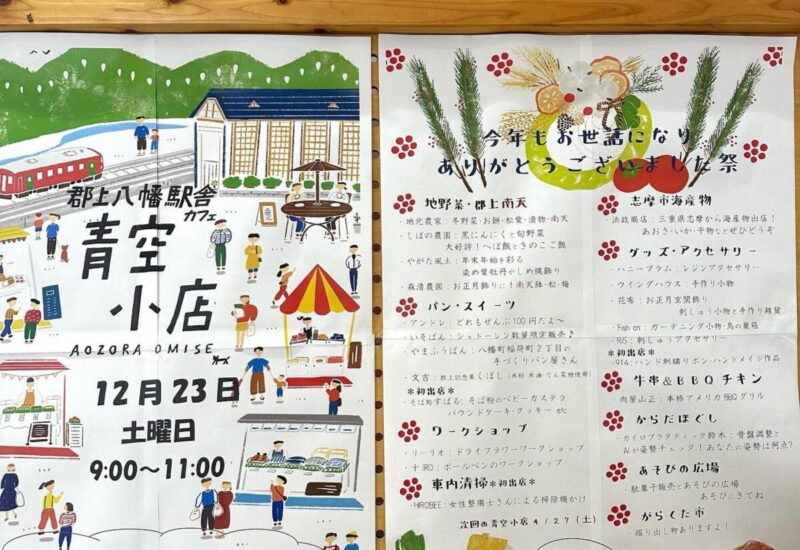 郡上八幡駅舎
カフェ
青空
小店
AOZORA OMISE
12月23日
土曜日
9:00〜11:00
今年もお世話になり
ありがとうございました祭
地野菜・郡上南天
・地元農家：冬野菜・お餅・松葉・漬物・南天
・しばの農園：黒にんにくと旬野菜
大好評！へぼ飯ときのこご飯
・やがた風土：年末年始を彩る
染め葉牡丹やしめ縄飾り
・森清農園：お正月飾りに！南天鉢・松・梅
パン・スイーツ
・アンドレ：どれもぜんぶ100円だよ〜
・いそぱん：シュトーレン数量限定販売♪
・やまふうぱん：八幡町稲荷町2丁目の
手づくりパン屋さん
・文吉：郡上記念菓くぼし(米粉・米油・てん菜糖使用)
*初出店*
・そば処すぱる：そば粉のベビーカステラ
パウンドケーキ・クッキー etc
ワークショップ
・リーリオ：ドライフラワーワークショップ
・十色：ボールペンのワークショップ
車内清掃*初出店*
・HIROBEE：女性整備士さんによる掃除機かけ
次回の青空小店 4/27(土)
志摩市海産物
・浜政商店：三重県志摩から海産物出店！
あおさ・いか・干物などぜひどうぞ
グッズ・アクセサリー
・ハニープラム：レジンアクセサリー
・ウイングハウス：手作り小物
・花布：お正月玄関飾り
刺しゅう小物と手作り雑貨
・Fish on：ガーデニング小物・鳥の巣箱
・R5：刺しゅうアクセサリー
*初出店*
・914：ハンド刺繍リボン・ハンドメイド作品
牛串＆BBQチキン
・肉屋山正：本格アメリカBBQグリル
からだほぐし
・カイロプラクティック鈴木：骨盤調整と
AIが姿勢チェック！あなたの姿勢は何点？
あそびの広場
・駄菓子販売とあそびの広場
あそびにきてね
がらくた市
・掘り出し物ありますよ！